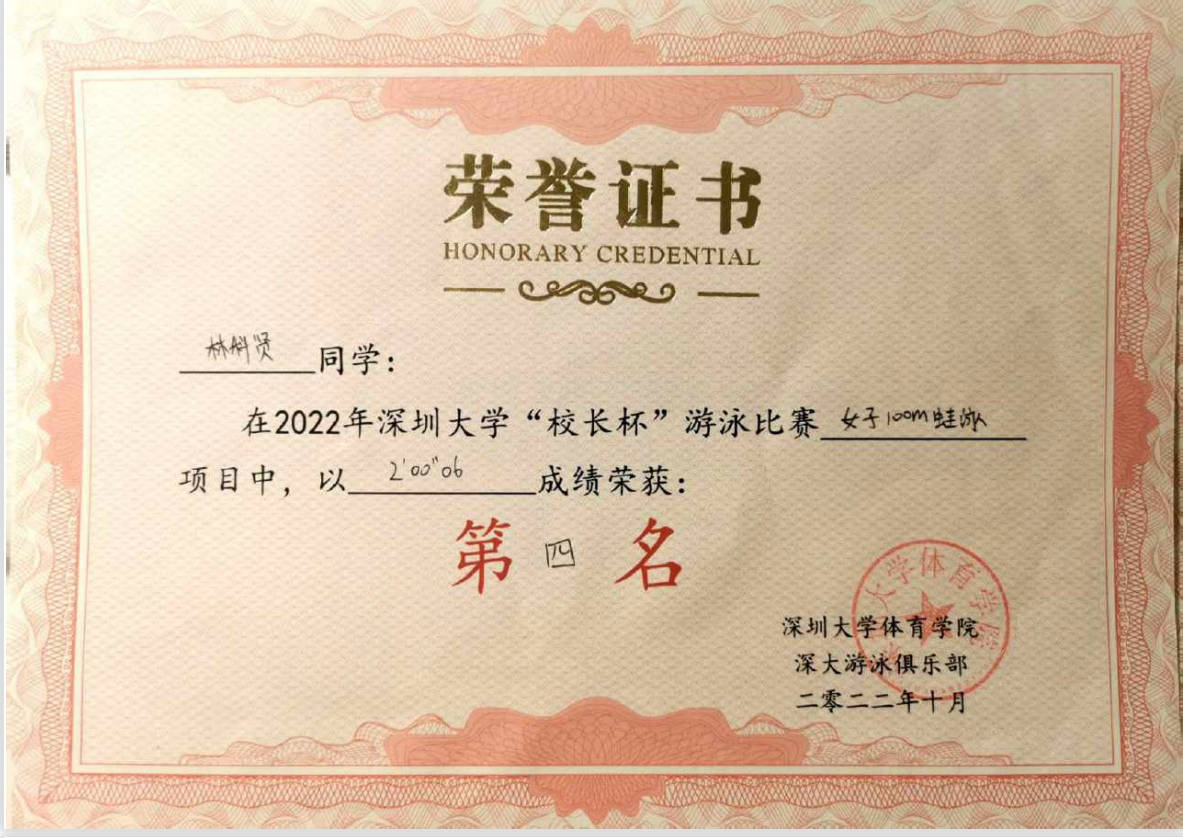 荣誉证书
HONORARY CREDENTIAL
林斛贤同学：
在2022年深圳大学“校长杯”游泳比赛 女子100m蛙泳
项目中，以 2'00"06 成绩荣获：
第四名
大学体育学院
深圳大学体育学院
深大游泳俱乐部
二零二二年十月